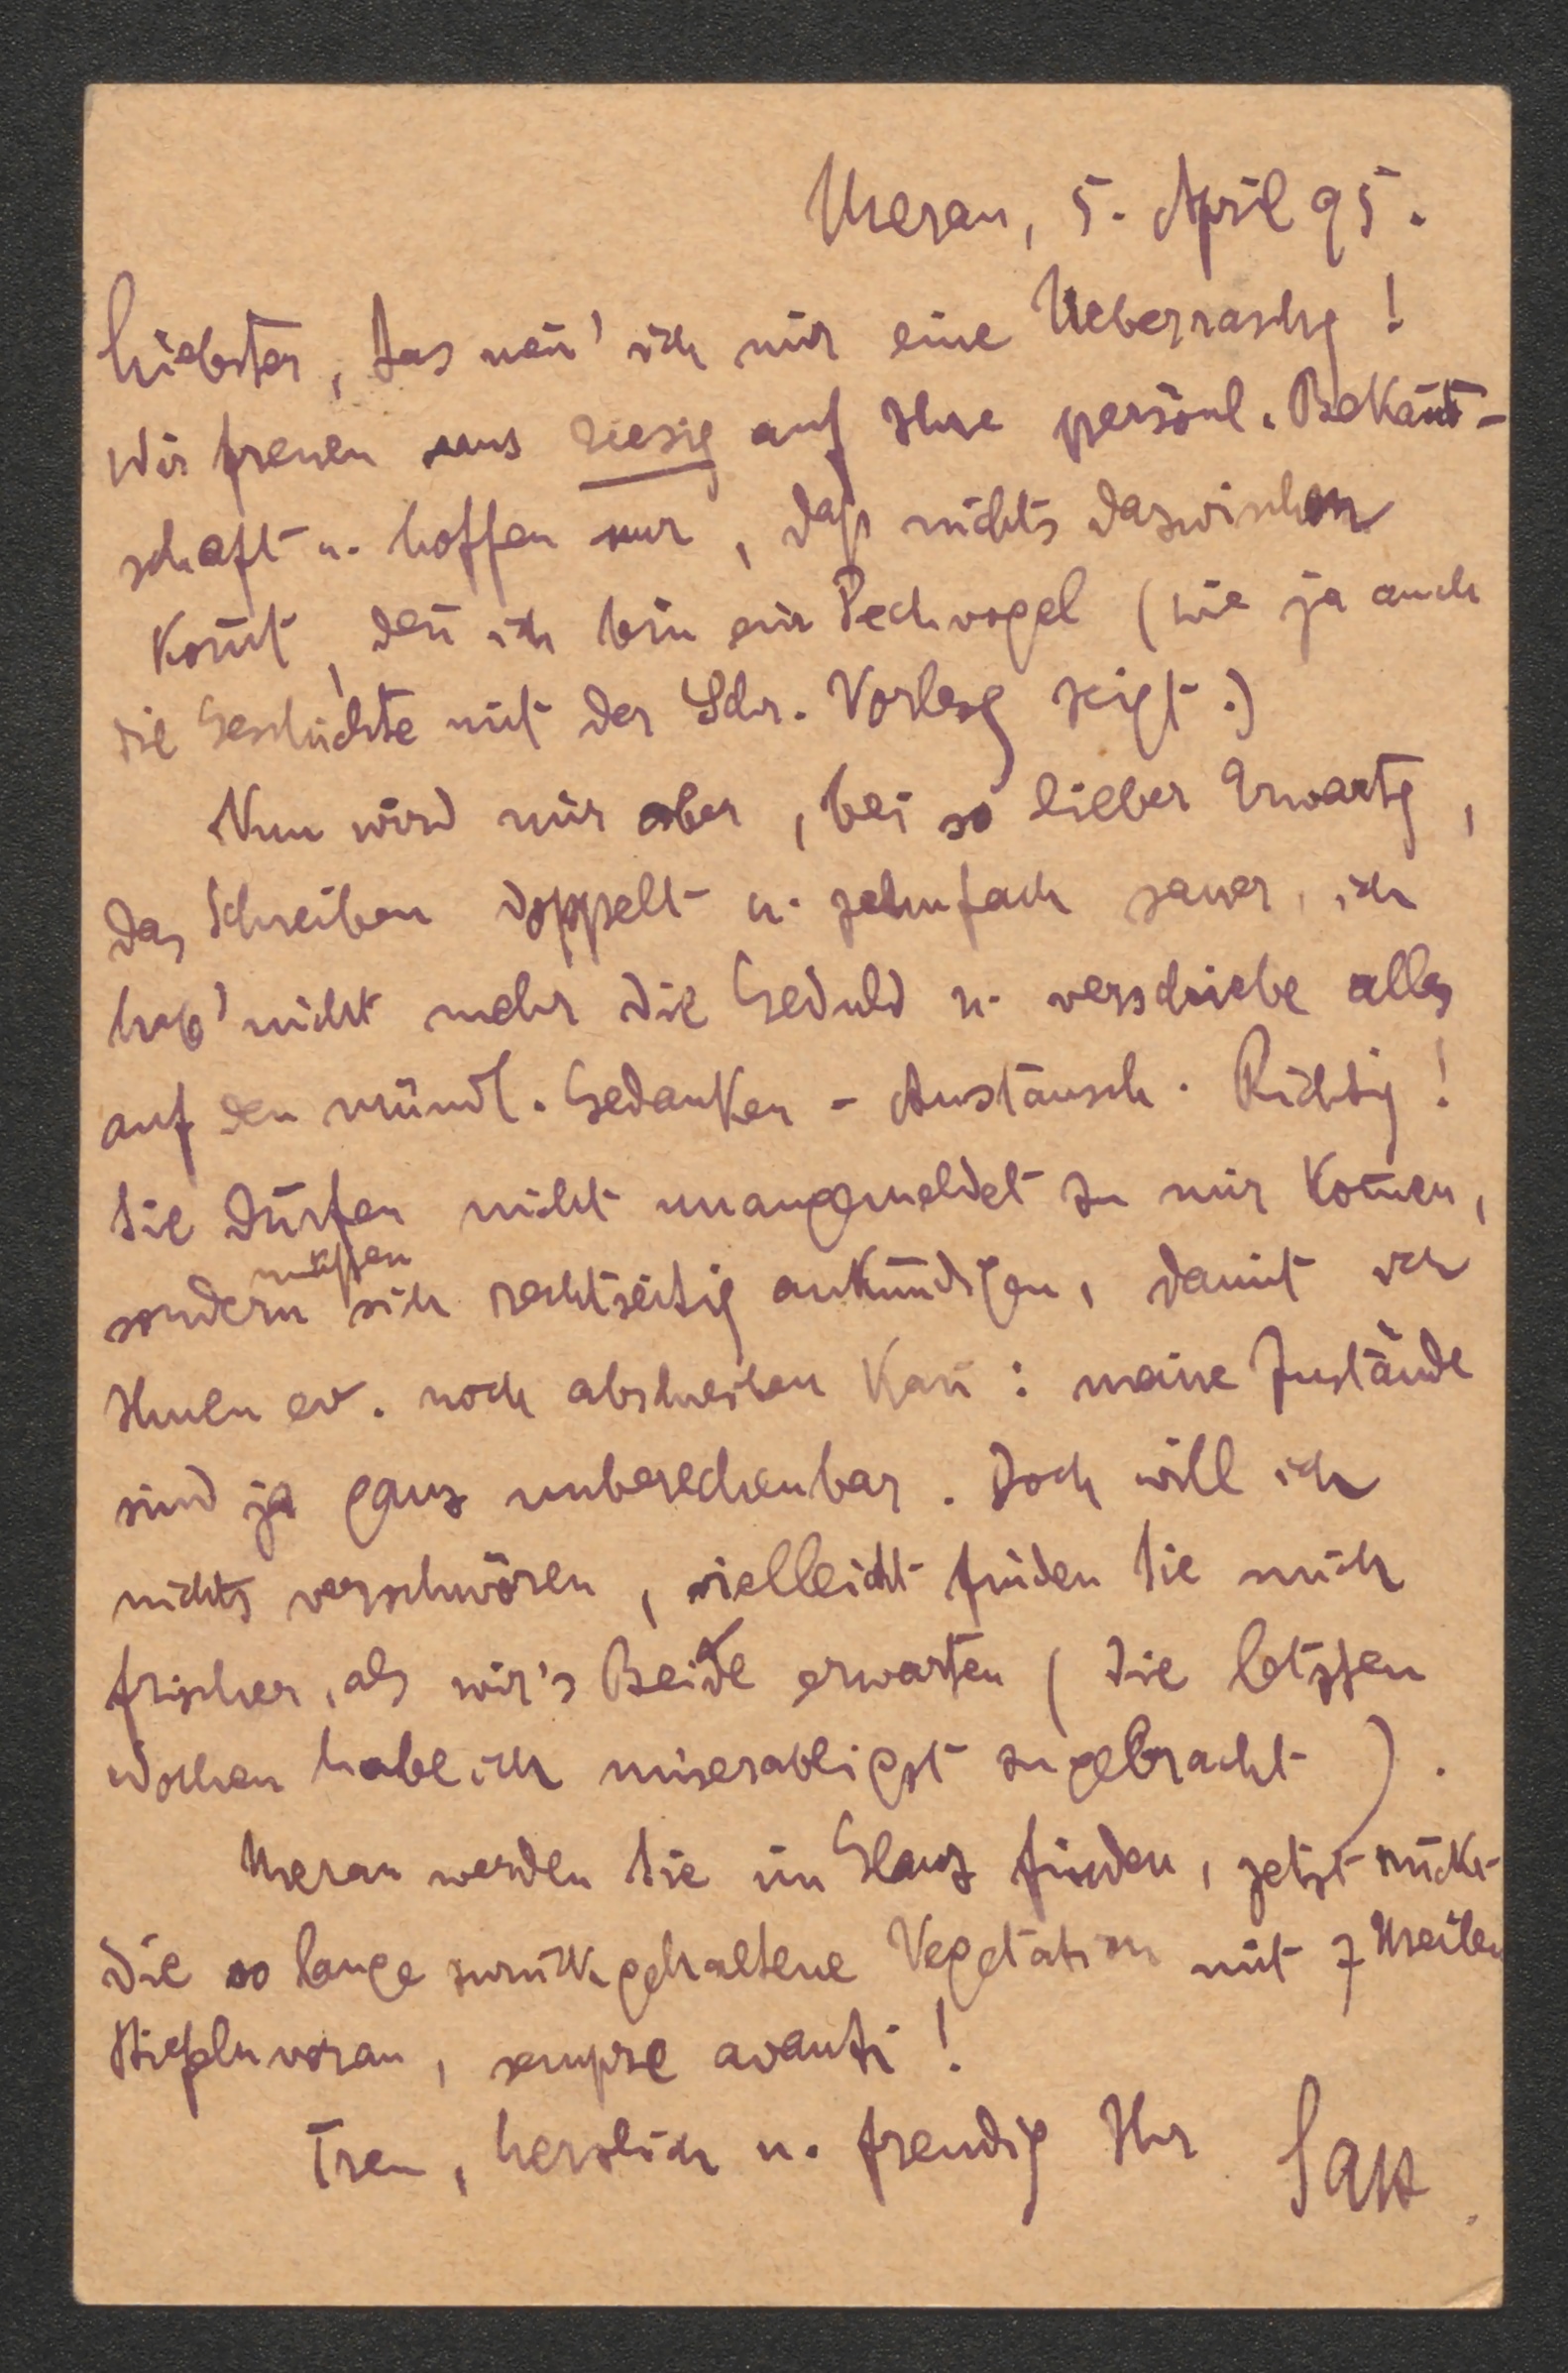 Meran, 5. April 95.
Liebster, das nen̄' ich mir eine Ueberraschg!
Wir freuen uns riesig auf Ihre persönl. Bekan̄t-
schaft u. hoffen nur, daß nichts dazwischen
kom̄t, den̄ ich bin ein Pechvogel (wie ja auch
die Geschichte mit der Schr. Vorlesg zeigt.)
Nun wird mir aber, bei so lieber Erwartg,
das Schreiben doppelt u. zehnfach sauer, ich
hab' nicht mehr die Geduld u. verschiebe alles
auf den mündl. Gedanken-Austausch. Richtig!
Sie dürfen nicht unangemeldet zu mir kom̄en,
müssen
sondern sich rechtzeitig ankündigen, damit ich
Ihnen ev. noch abschreiben kan̄: meine Zustände
sind ja ganz unberechenbar. Doch will ich
nichts verschwören, vielleicht finden Sie mich
frischer, als wir's Beide erwarten (die letzten
Wochen habe ich miserabligst zugebracht).
Meran werden Sie im Glanz finden, jetzt rückt
die so lange zurückgehaltene Vegetation mit 7 Meilen
Stiefeln voran, sempre avanti!
Treu, herzlich u. freudig Ihr